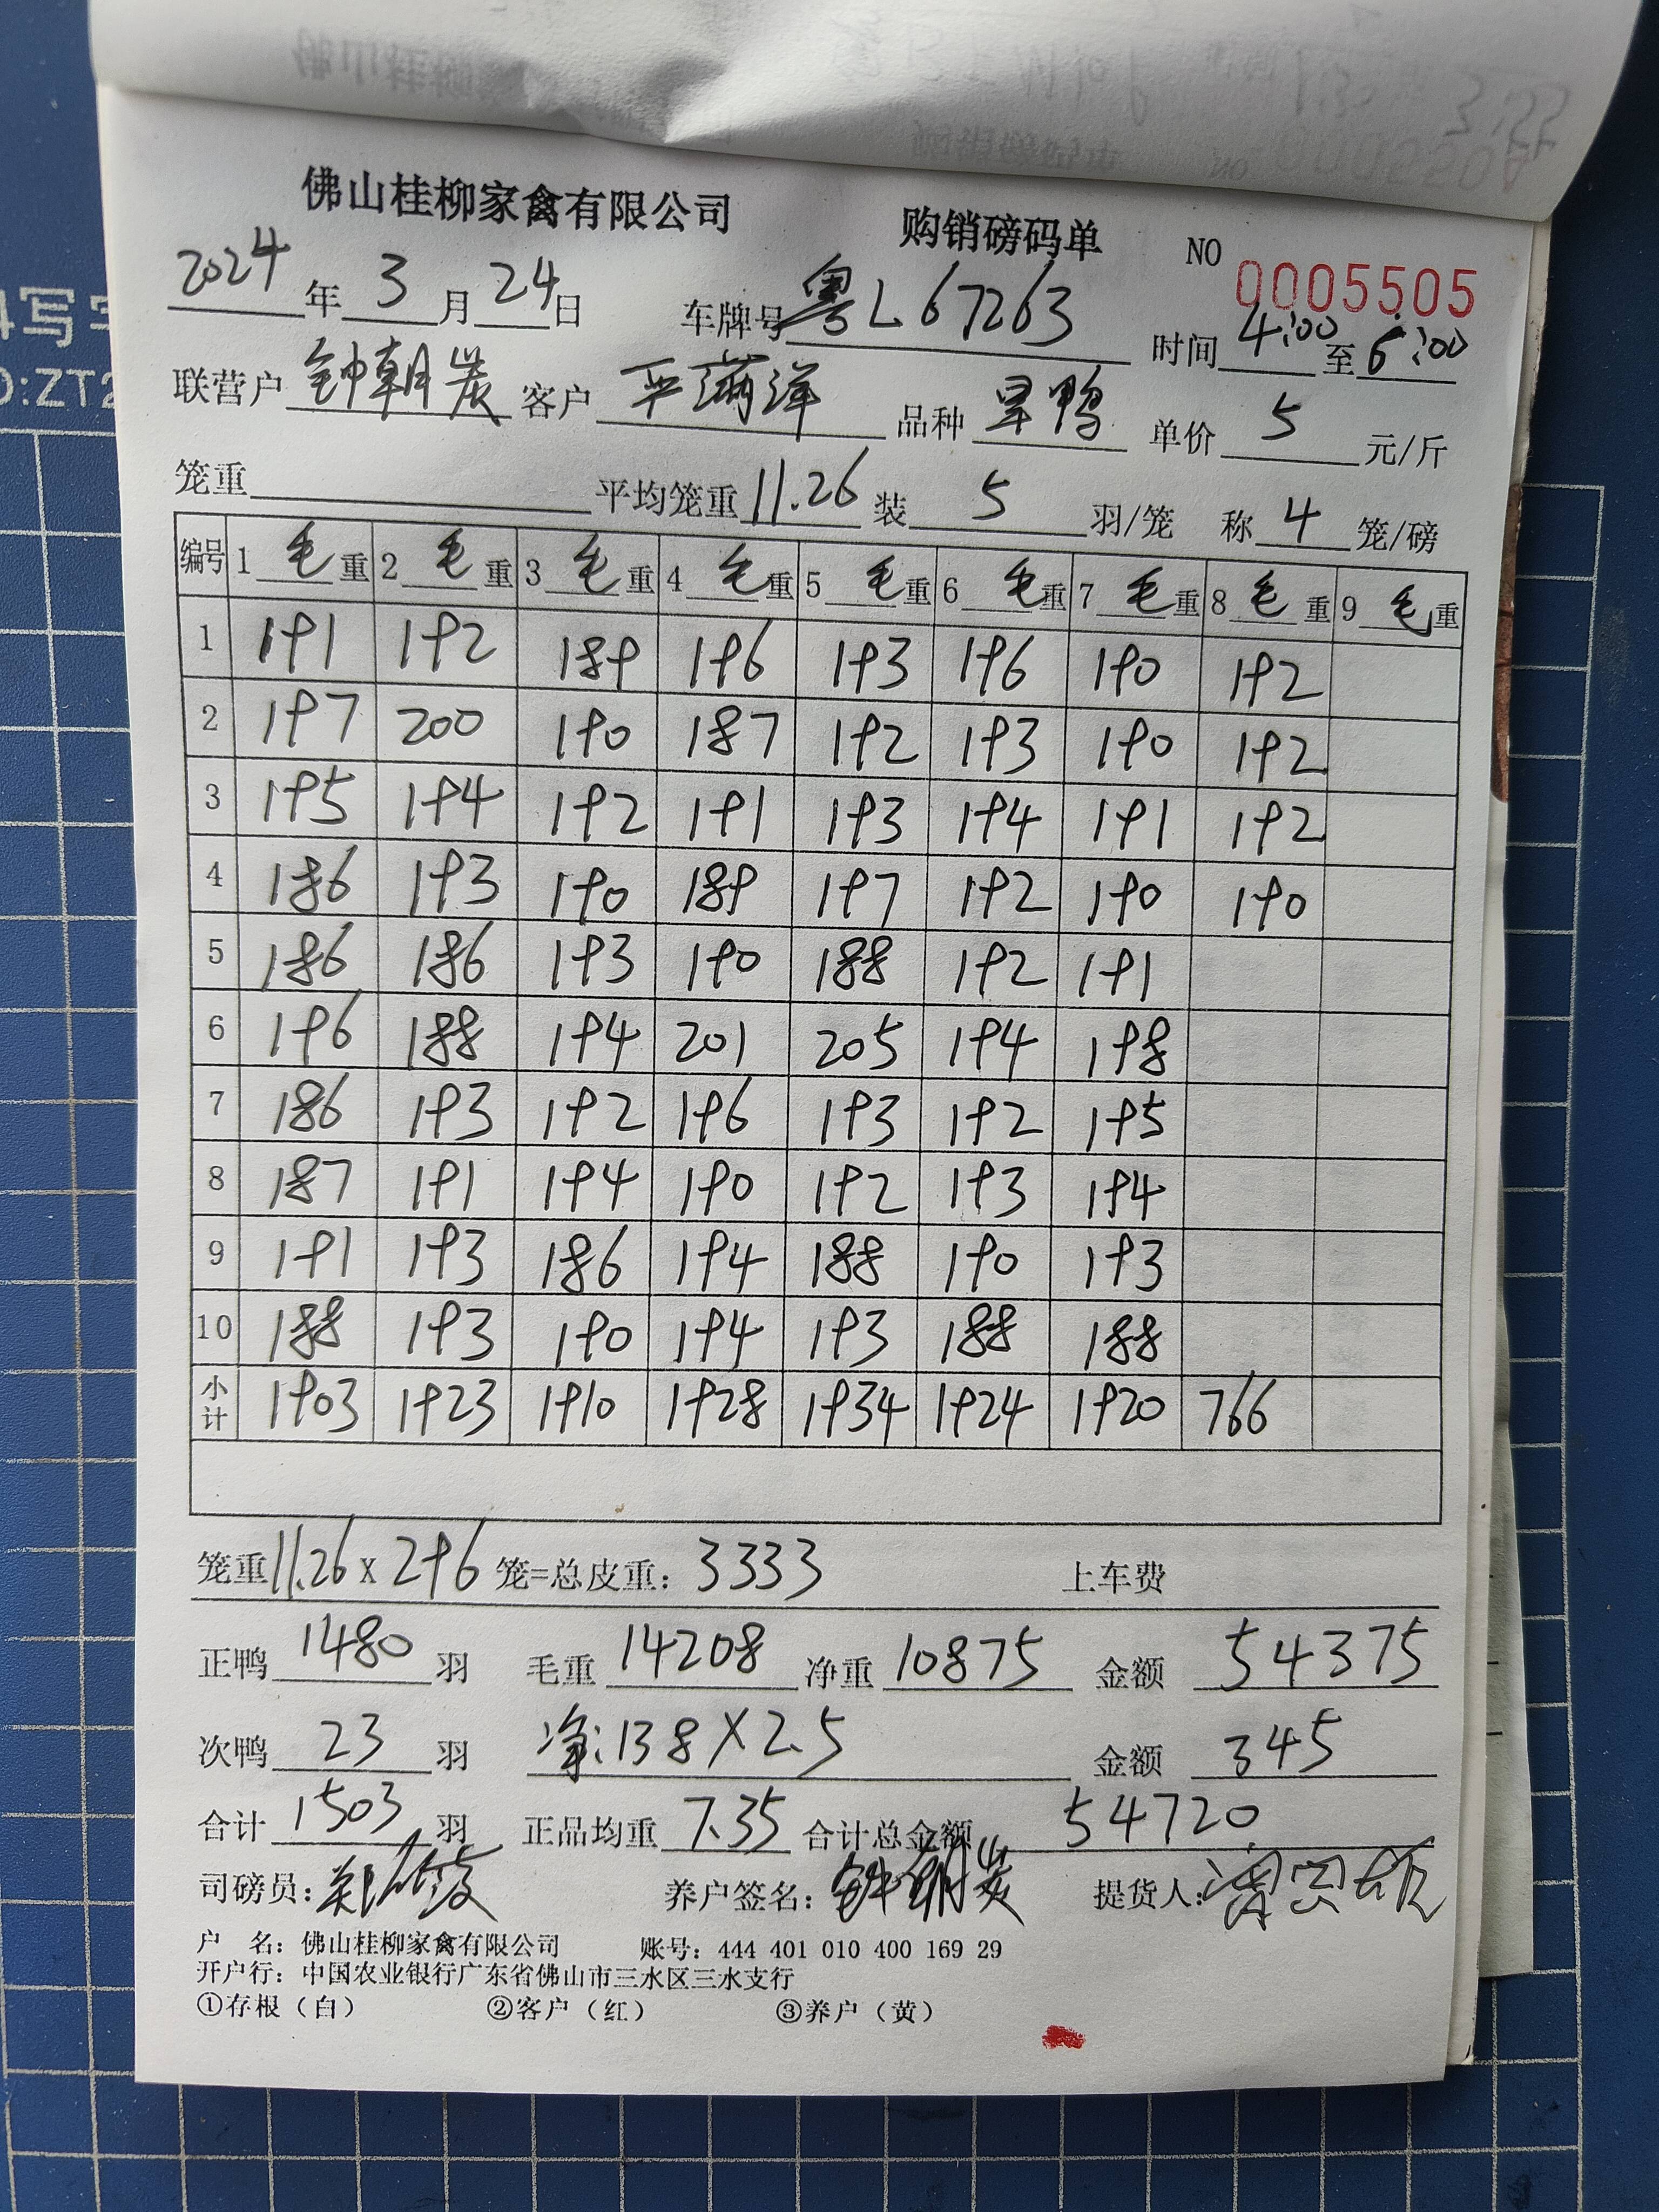 佛山桂柳家禽有限公司 购销磅码单 NO 0005505
2024年3月24日 车牌号粤L67263 时间4:00至6:00
联营户钟朝炭 客户平满洋 品种旱鸭 单价5元/斤
笼重 平均笼重11.26 装5羽/笼 称4笼/磅
编号 1毛重 2毛重 3毛重 4毛重 5毛重 6毛重 7毛重 8毛重 9毛重
1 191 192 189 196 193 196 190 192
2 197 200 190 187 192 193 190 192
3 195 194 192 191 193 194 191 192
4 186 193 190 189 197 192 190 190
5 186 186 193 190 188 192 191
6 196 188 194 201 205 194 198
7 186 193 192 196 193 192 195
8 187 191 194 190 192 193 194
9 191 193 186 194 188 190 193
10 188 193 190 194 193 188 188
小计 1903 1923 1910 1928 1934 1924 1920 766
笼重11.26x296笼=总皮重：3333 上车费
正鸭1480羽 毛重14208 净重10875 金额54375
次鸭23羽 净：138X2.5 金额345
合计1503羽 正品均重7.35 合计总金额54720
司磅员： 养户签名：钟朝炭 提货人：
户 名：佛山桂柳家禽有限公司 账号：444 401 010 400 169 29
开户行：中国农业银行广东省佛山市三水区三水支行
①存根（白） ②客户（红） ③养户（黄）